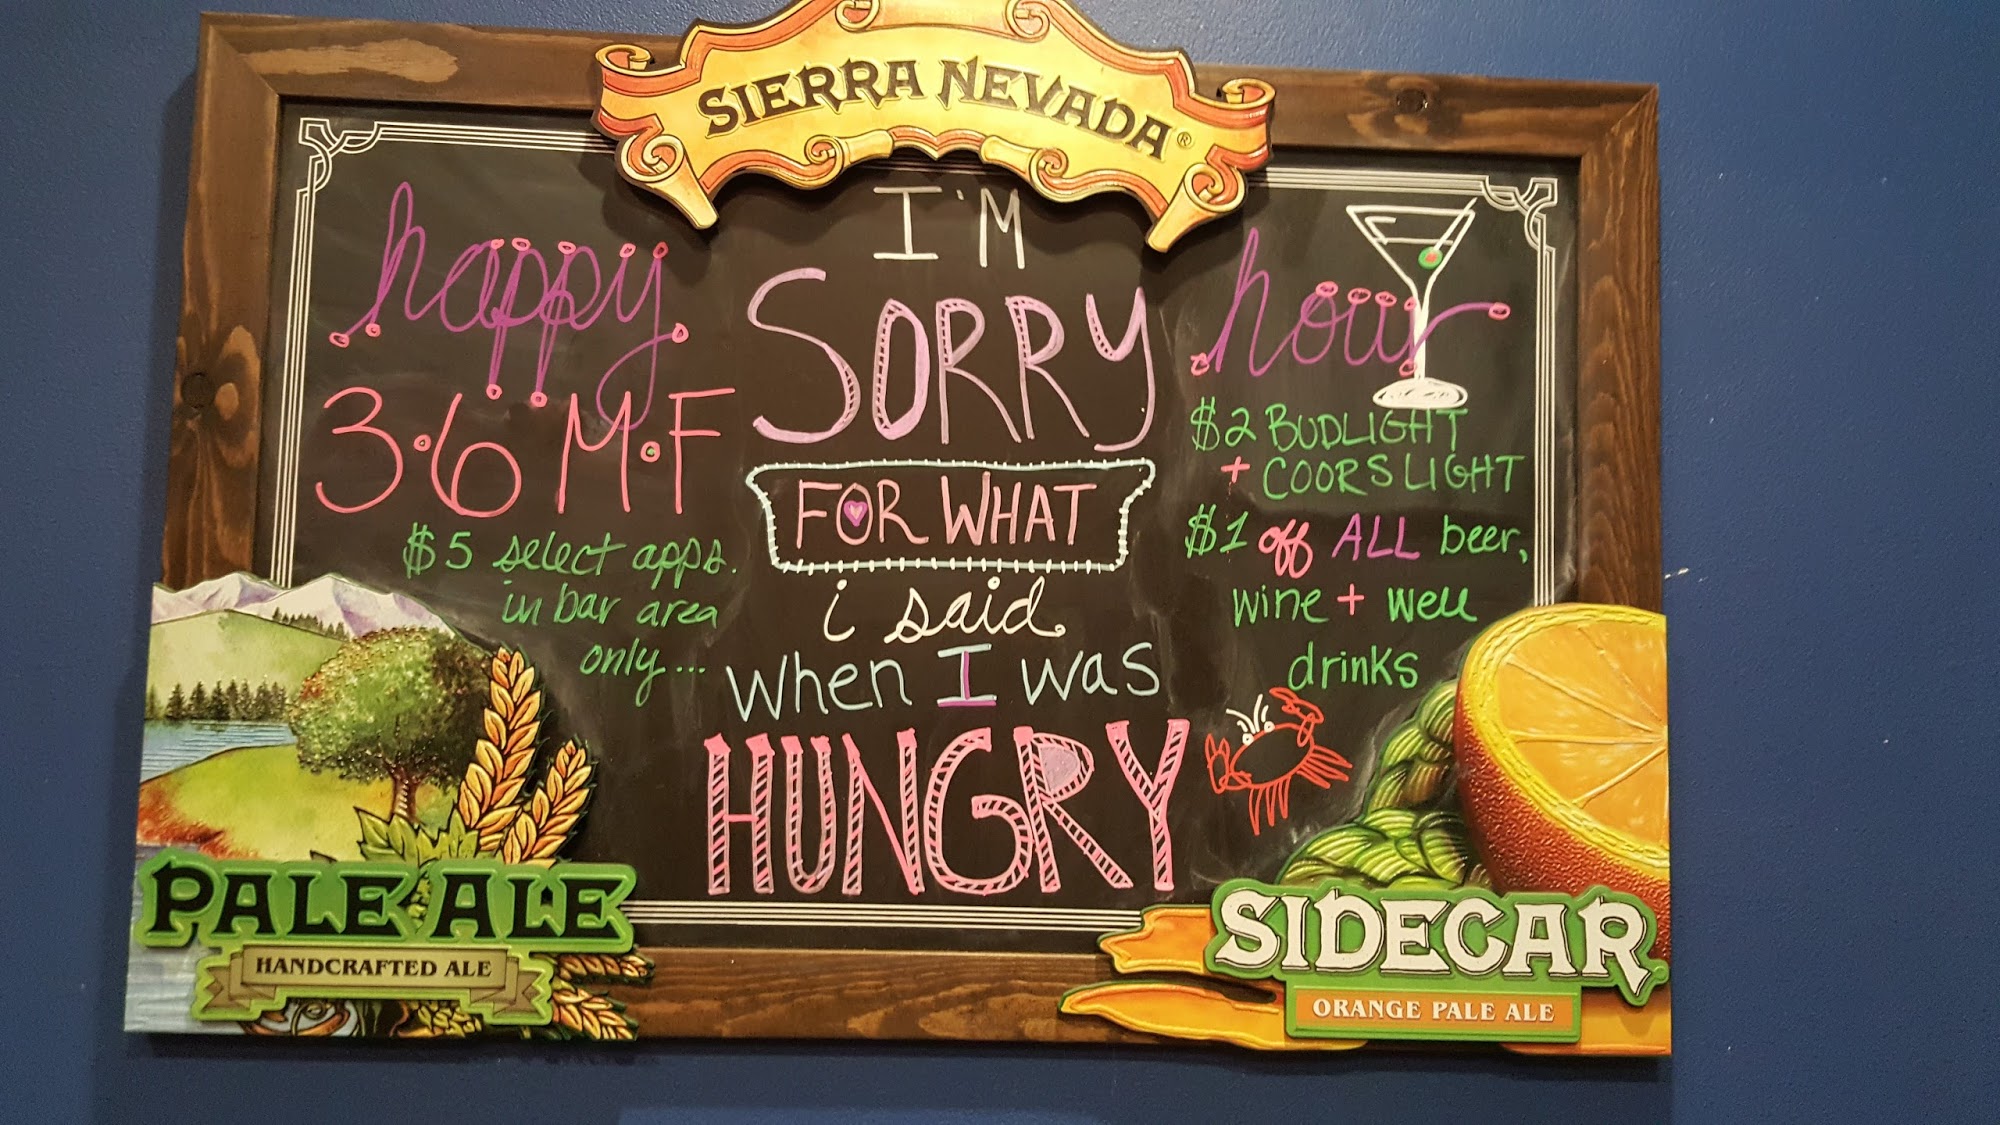 SIERRA NEVADA®
happy
3-6 M•F
$5 select apps.
in bar area
only...
I'M
SORRY
FOR WHAT
i said
when I was
HUNGRY
hour
$2 BUDLIGHT
+ COORS LIGHT
$1 off ALL beer,
wine + well
drinks
PALE ALE
HANDCRAFTED ALE
SIDECAR
ORANGE PALE ALE